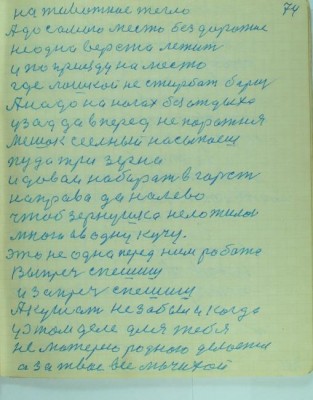 74
на животное тегло
А до самого место без дорожие
не одна верста лежит
и по приезду на место
где лошкой не стирбат баря
А надо на ногах без отдыха
узад да в перед не порожния
Мешок сеельный насыпаеш
пуда три зерна
и довай набарат в гарст
направа да налево
чтоб зернушка неложилос
многа в одну кучу.
это не одна перед ним работа
Выпреч спешиш
и запреч спешиш
А кушат не забыл и когда
у этом деле для тебя
не матерю родного делается
а за твае все мачихой